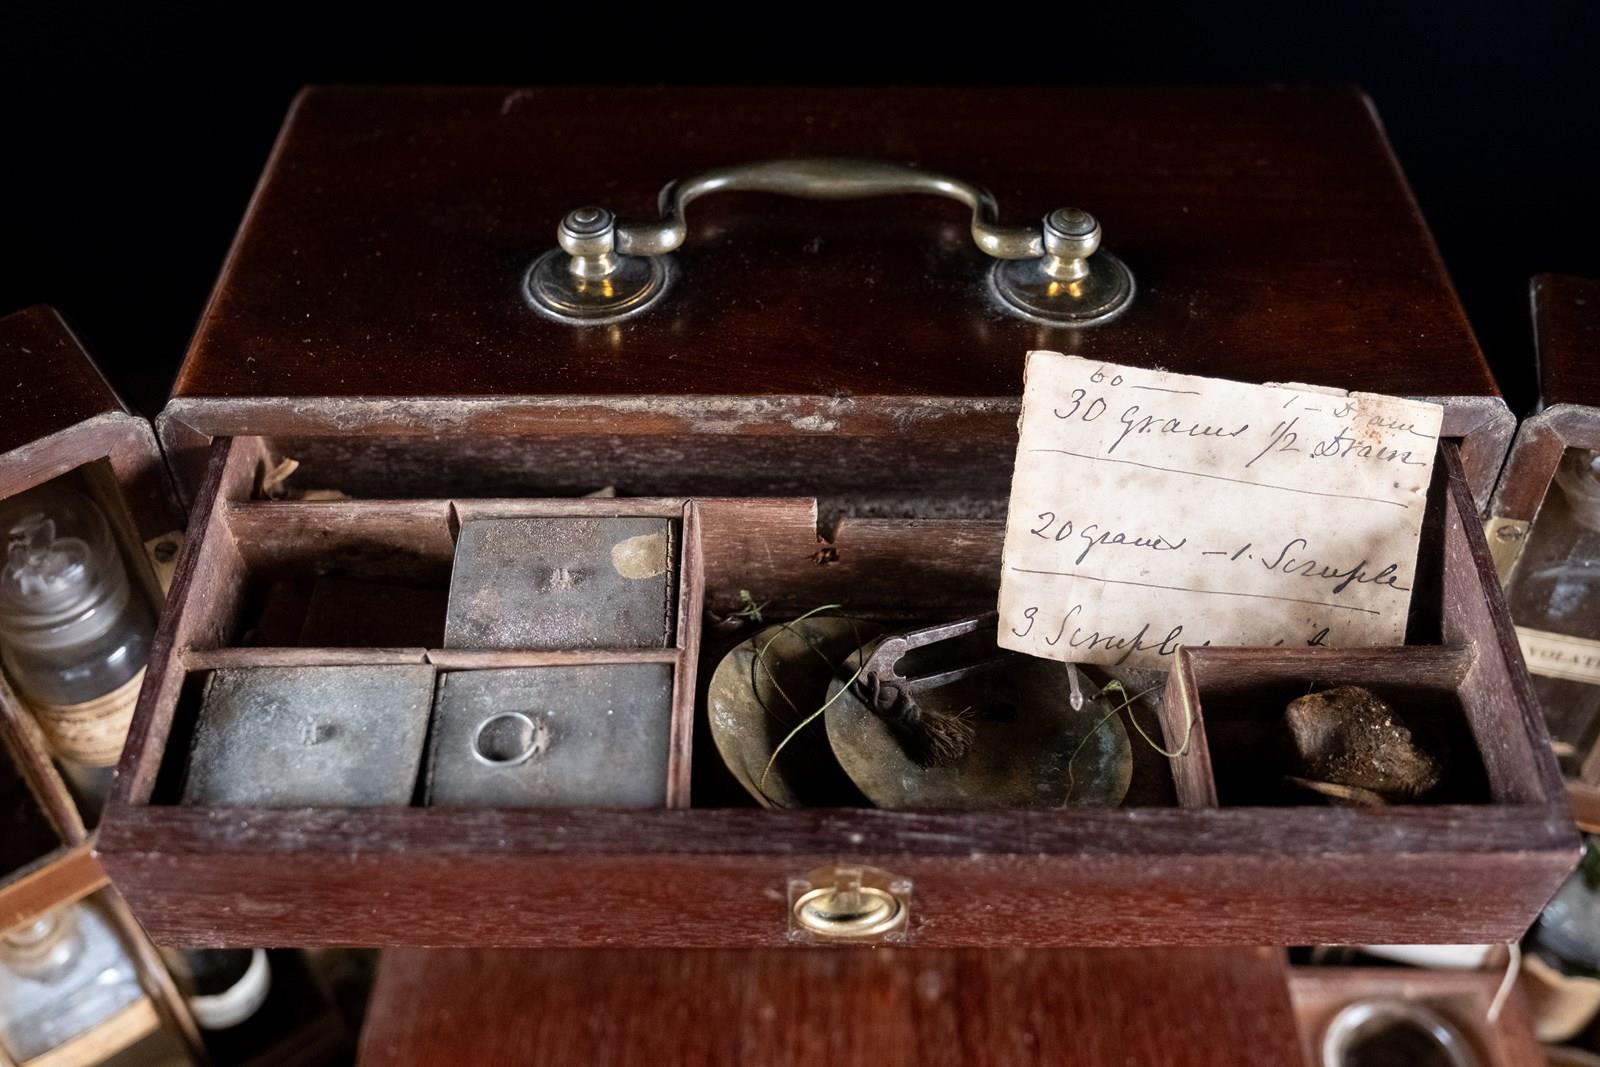 60 — 1 – Dram
30 Grains 1/2 Dram
20 grains – 1. Scruple
3 Scruples
VOLATI